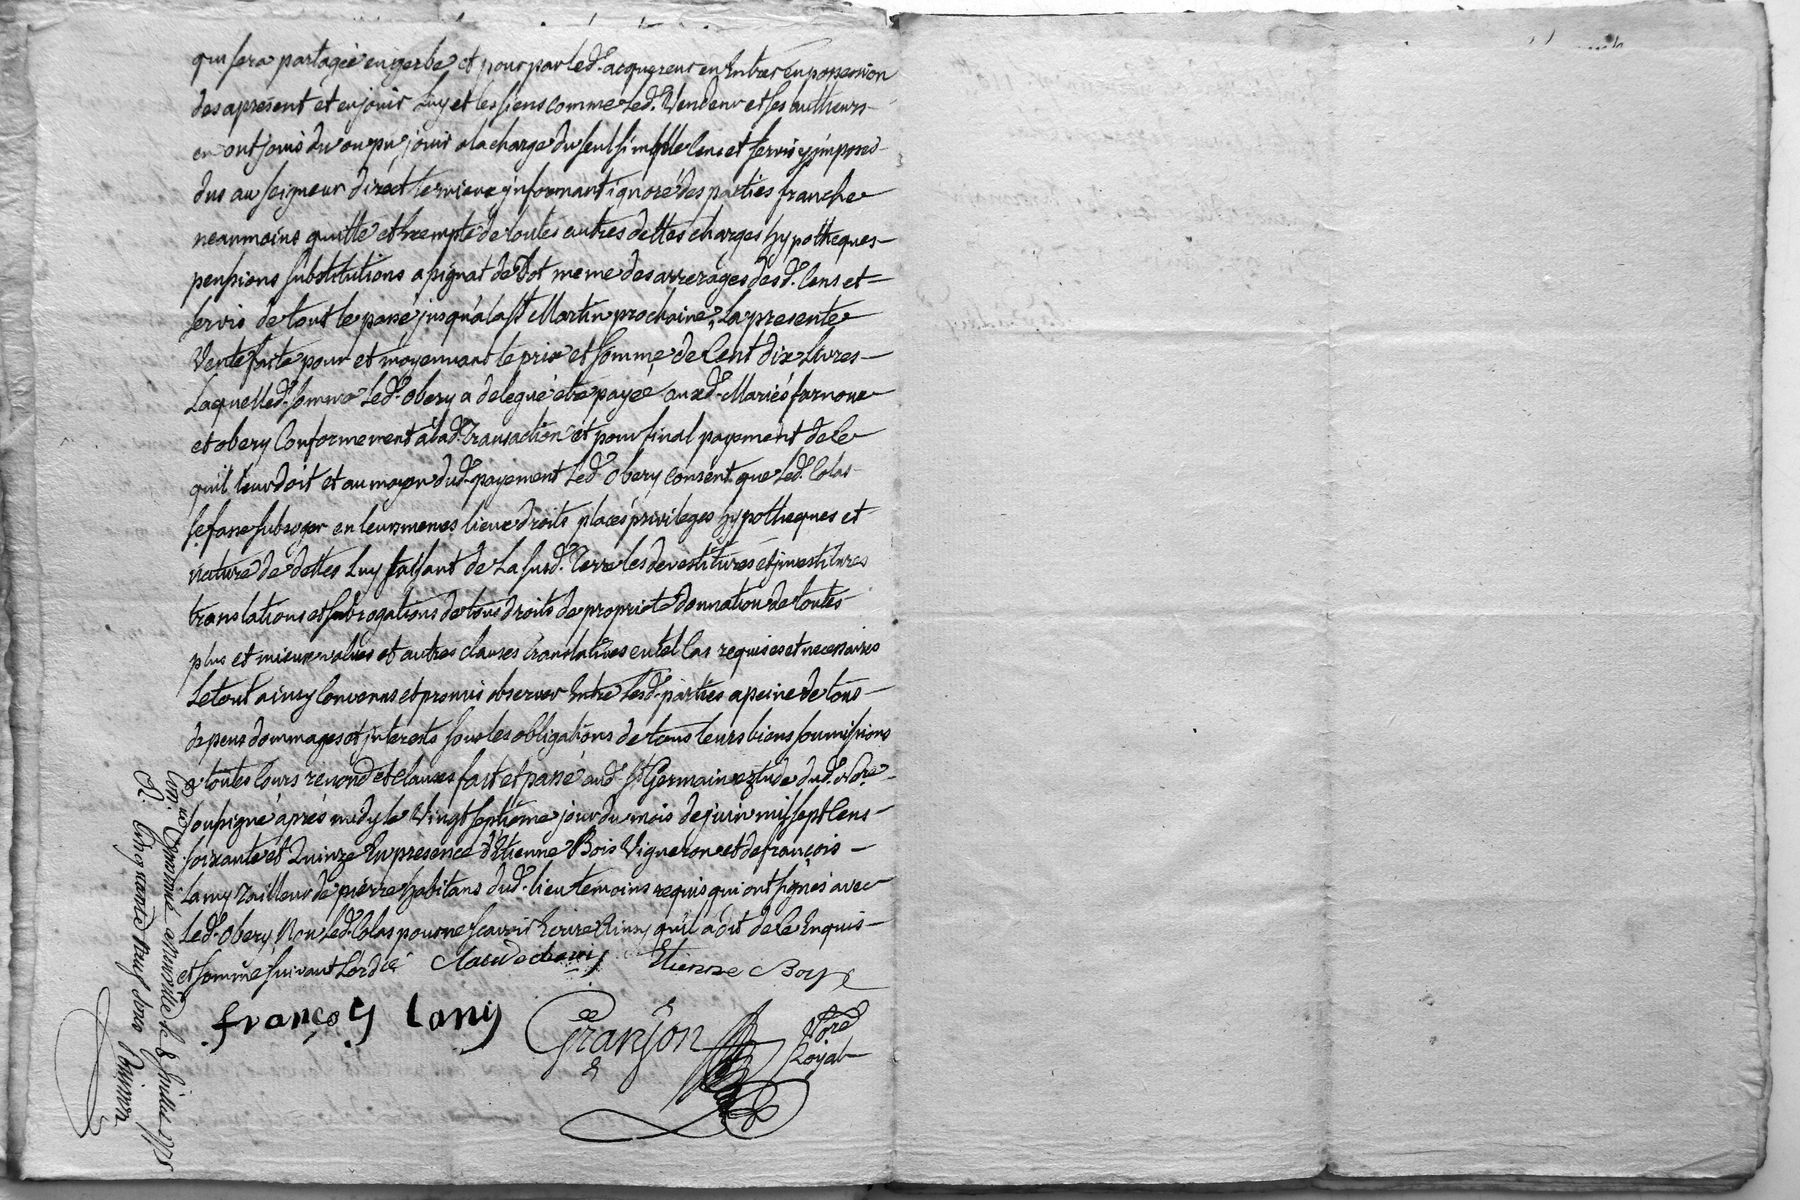 qui sera partagée en gerbe et pour par led. acquereur en Entrer en possession
des apresent et en jouir Luy et les siens comme led. Vendeur et ses autheurs
en ont jouis du ou pu jouir a la charge du seul simple Cens et servis y imposes
dus au seigneur direct ignoré des parties franche
neanmoins quitte et Exempte de toutes autres dettes charges hypotheques
pensions substitutions assignat de Dot meme des arrerages desd. Cens et
servis de tout le passé jusqu'a la St Martin prochaine, La presente
Vente faite pour et moyennant le prix et somme de Cent dix Livres
Laquelle d. somme Led. Obery a delegué être payée auxd. Mariés farnoux
et obery Conformement a lad. Transaction et pour final payement de Ce
quil leur doit et au moyen dud. payement Led. Obery consent que Led. Colas
se fasse subroger en leurs memes lieux droits places privileges hypotheques et
nature de dettes Luy faisant de La susd. Terre les devestitures et investitures
translations et subrogations de tous droits de proprieté donnation de toutes
plus et mieux values et autres clauses translatives en tel Cas requises et necessaires
Le tout ainsy Convenus et promis observer Entre Lesd. parties a peine de tous
depens dommages et interests sous les obligations de tous leurs biens soumissions
a toutes Cours renond. et clauses fait et passé aud. St Germain etude dud. Nore
soussigné après midy le Vingt septieme jour du mois de juin mil sept Cens
soixante et Quinze En presence d'Etienne Bois Vigneron et de françois
Lany Tailleur de pierre habitans dud. lieu temoins requis qui ont signés avec
Led. Obery Non Led. Colas pour ne scavoir Ecrire Ainsy qu'il a dit de Ce Enquis
et sommé suivant Lordce
Etienne Boys
françois Lany
Granjon
Nore
Royal
le 8 juillet 1775
R. Cinq sols